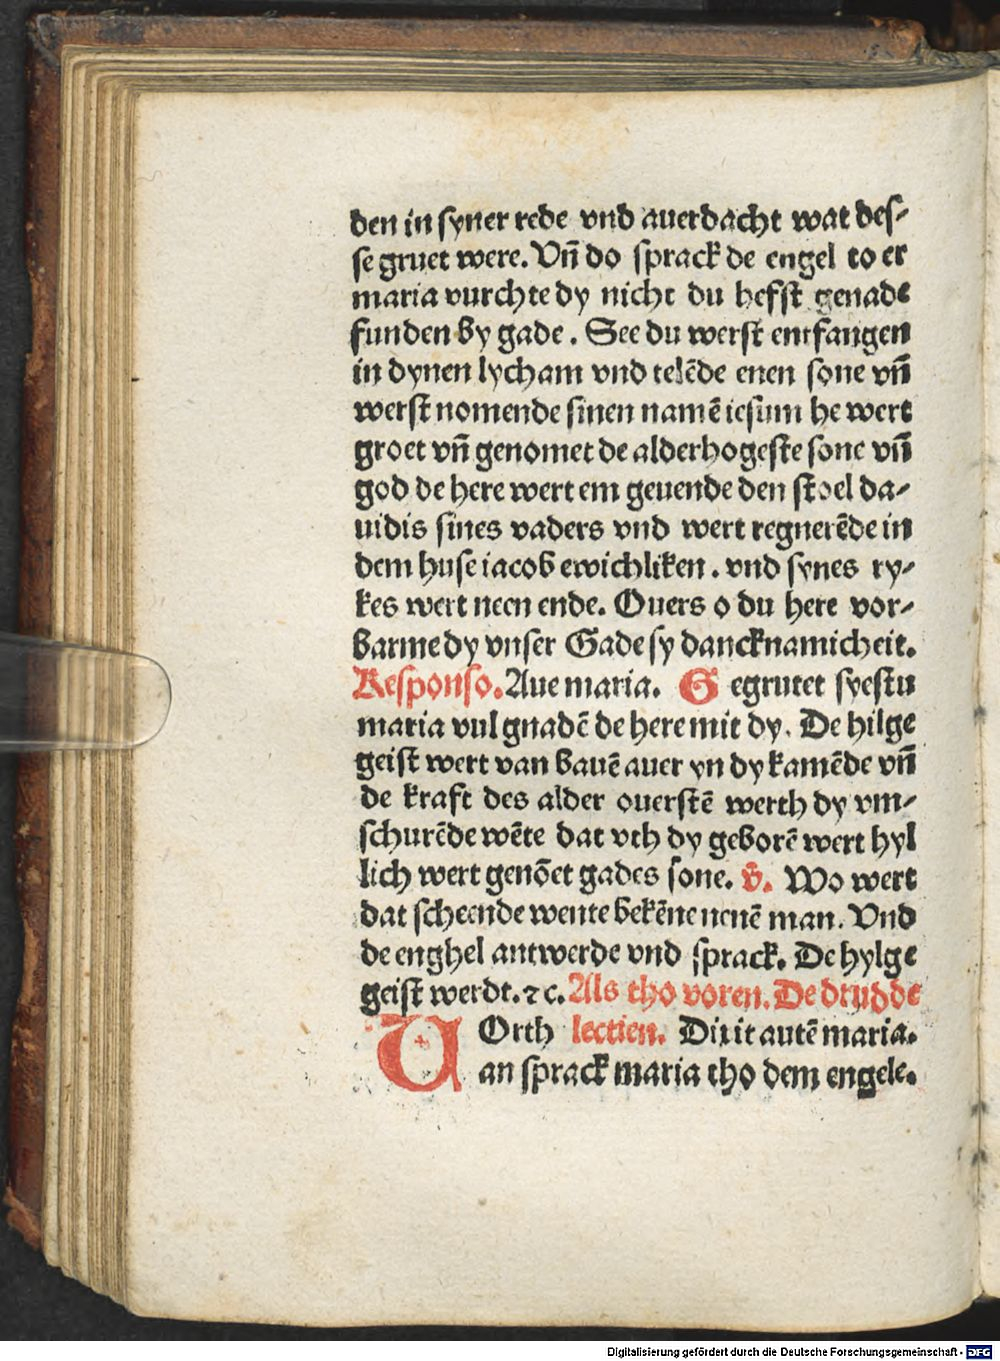 den in syner rede vnd auerdacht wat des-
se gruet were. Vn̄ do sprack de engel to er
maria vurchte dy nicht du hefst genade
funden by gade. See du werst entfangen
in dynen lycham vnd telēde enen sone vn̄
werst nomende sinen namē iesum he wert
groet vn̄ genomet de alderhogeste sone vn̄
god de here wert em geuende den stoel da-
uidis sines vaders vnd wert regnerēde in
dem huse iacob ewichliken. vnd synes ry-
kes wert neen ende. Ouers o du here vor-
barme dy vnser Gade sy dancknamicheit.
Responso. Aue maria. G egrutet syestu
maria vul gnadē de here mit dy. De hilge
geist wert van bauē auer yn dy kamēde vn̄
de kraft des alder ouerstē werth dy vm-
schurēde wēte dat vth dy geborē wert hyl
lich wert genōet gades sone. v̄. Wo wert
dat scheende wente bekēne nenē man. Vnd
de enghel antwerde vnd sprack. De hylge
geist werdt. ⁊c. Als tho voren. De drudde
U Orth lectien. Dixit autē maria.
an sprack maria tho dem engele.
Digitalisierung gefördert durch die Deutsche Forschungsgemeinschaft - DFG